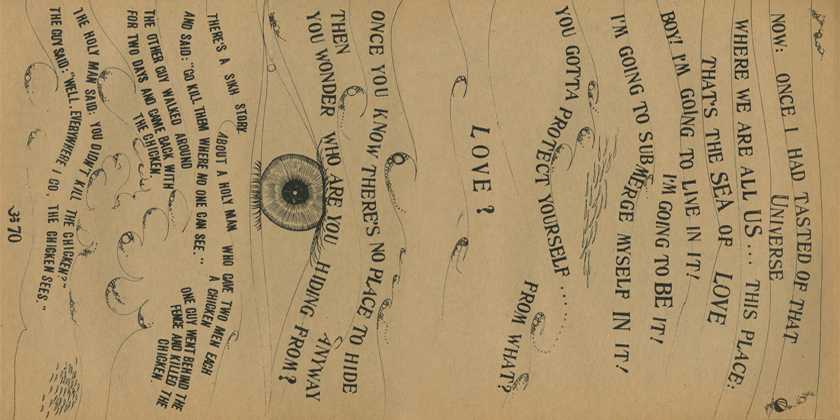 NOW: ONCE I HAD TASTED OF THAT
UNIVERSE
WHERE WE ARE ALL US... THIS PLACE:
THAT'S THE SEA OF LOVE
BOY! I'M GOING TO LIVE IN IT!
I'M GOING TO BE IT!
I'M GOING TO SUBMERGE MYSELF IN IT!
YOU GOTTA PROTECT YOURSELF......
FROM WHAT?
LOVE?
ONCE YOU KNOW THERE'S NO PLACE TO HIDE
ANYWAY
THEN
YOU WONDER WHO ARE YOU HIDING FROM?
THERE'S A SIKH STORY ABOUT A HOLY MAN WHO GAVE TWO MEN EACH
A CHICKEN
AND SAID: "GO KILL THEM WHERE NO ONE CAN SEE..
ONE GUY WENT BEHIND THE
FENCE AND KILLED THE
CHICKEN.
THE OTHER GUY WALKED AROUND
FOR TWO DAYS AND CAME BACK WITH
THE CHICKEN.
THE HOLY MAN SAID: YOU DIDN'T KILL THE CHICKEN?"
THE GUY SAID: "WELL, EVERYWHERE I GO, THE CHICKEN SEES."
70